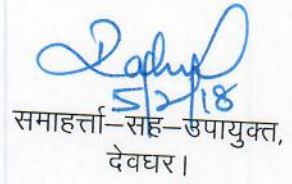 5/2/18
समाहर्त्ता–सह–उपायुक्त,
देवघर।